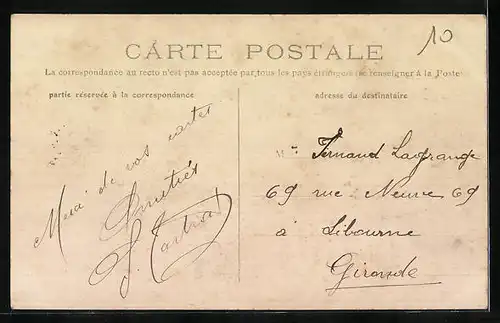 10
CARTE POSTALE
La correspondance au recto n'est pas acceptée par tous les pays étrangers (se renseigner à la Poste
partie réservée à la correspondance
adresse du destinataire
Merci de vos cartes
Amitiés
M Fernand Lagrange
69 rue Neuve 69
à Libourne
Gironde